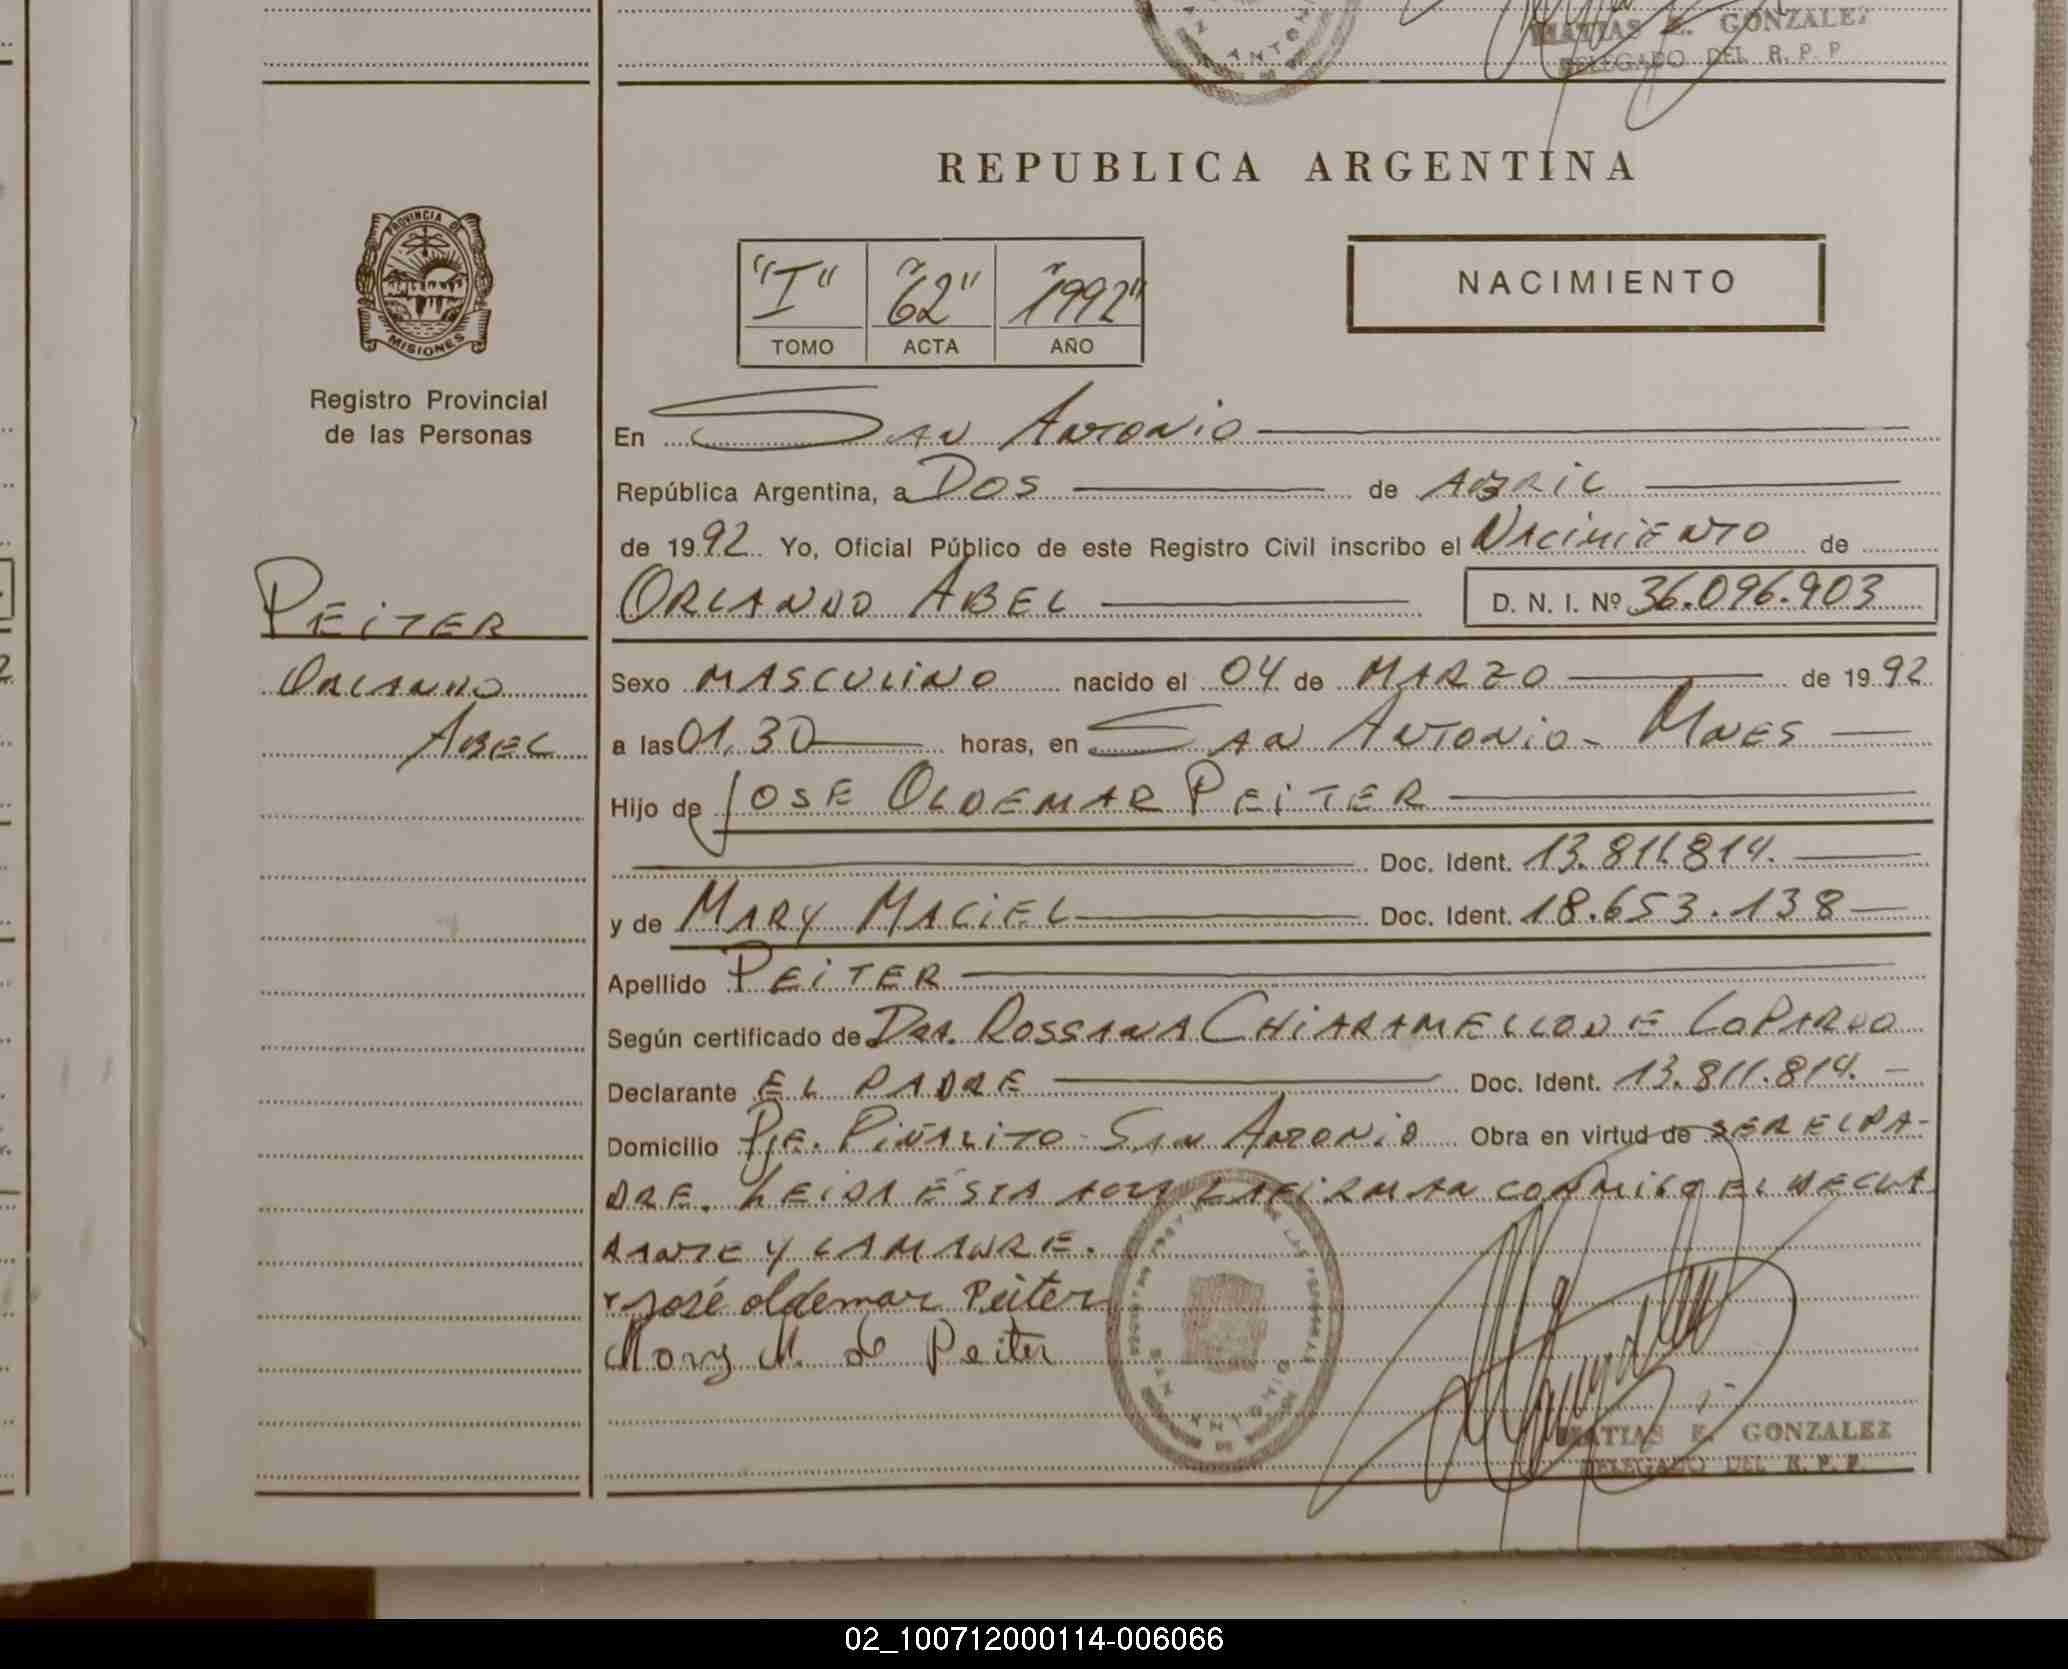 MATIAS E. GONZALEZ
DELEGADO DEL R. P. P.
REPUBLICA ARGENTINA
PROVINCIA DE
MISIONES
Registro Provincial
de las Personas
"I" "62" "1992"
TOMO ACTA AÑO
NACIMIENTO
En San Antonio
República Argentina, a Dos de Abril
de 1992 Yo, Oficial Público de este Registro Civil inscribo el Nacimiento de
Orlando Abel D. N. I. Nº 36.096.903
Peiter
Orlando
Abel
Sexo Masculino nacido el 04 de Marzo de 1992
a las 01,30 horas, en San Antonio - Mnes
Hijo de Jose Oldemar Peiter
Doc. Ident. 13.811.814.
y de Mary Maciel Doc. Ident. 18.653.138
Apellido Peiter
Según certificado de Dra. Rossana Chiaramello de Lopardo
Declarante El Padre Doc. Ident. 13.811.814.
Domicilio Pje. Piñalito - San Antonio Obra en virtud de ser el pa-
dre. Leida esta acta la firman conmigo el decla
rante y la madre.
José oldemar Peiter
Mary M. de Peiter
MATIAS E. GONZALEZ
DELEGADO DEL R. P. P.
02_100712000114-006066